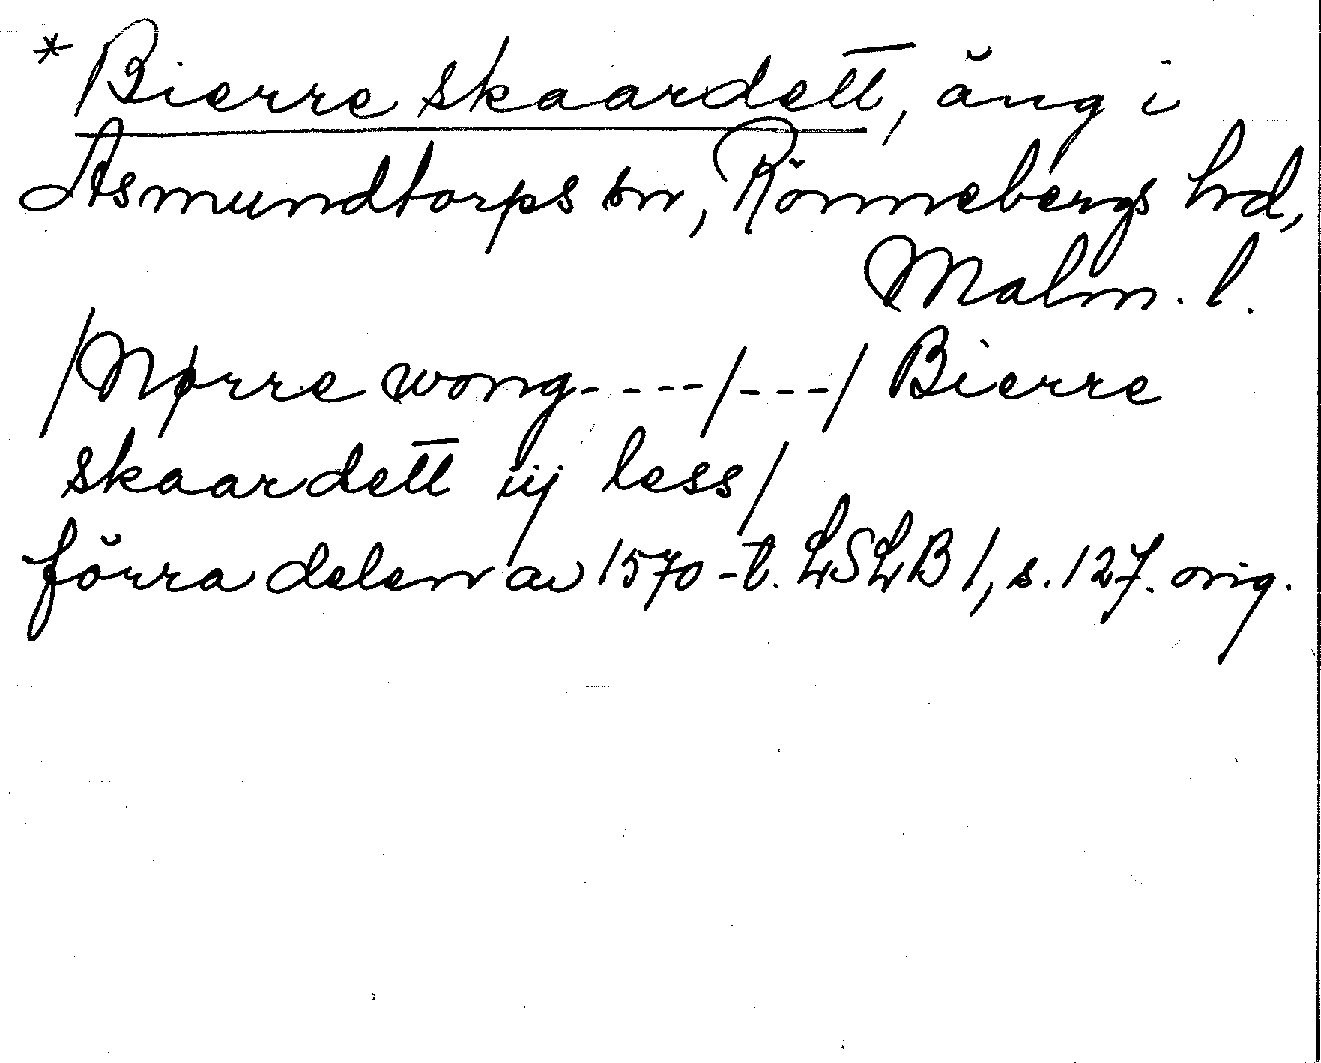 * Bierre skaardett, äng i
Asmundtorps sn, Rönnebergs hd,
Malm. l.
/Nørre wong----/---/ Bierre
skaardett iij less/
förra delen av 1570-t. LSLB 1, s. 127. orig.